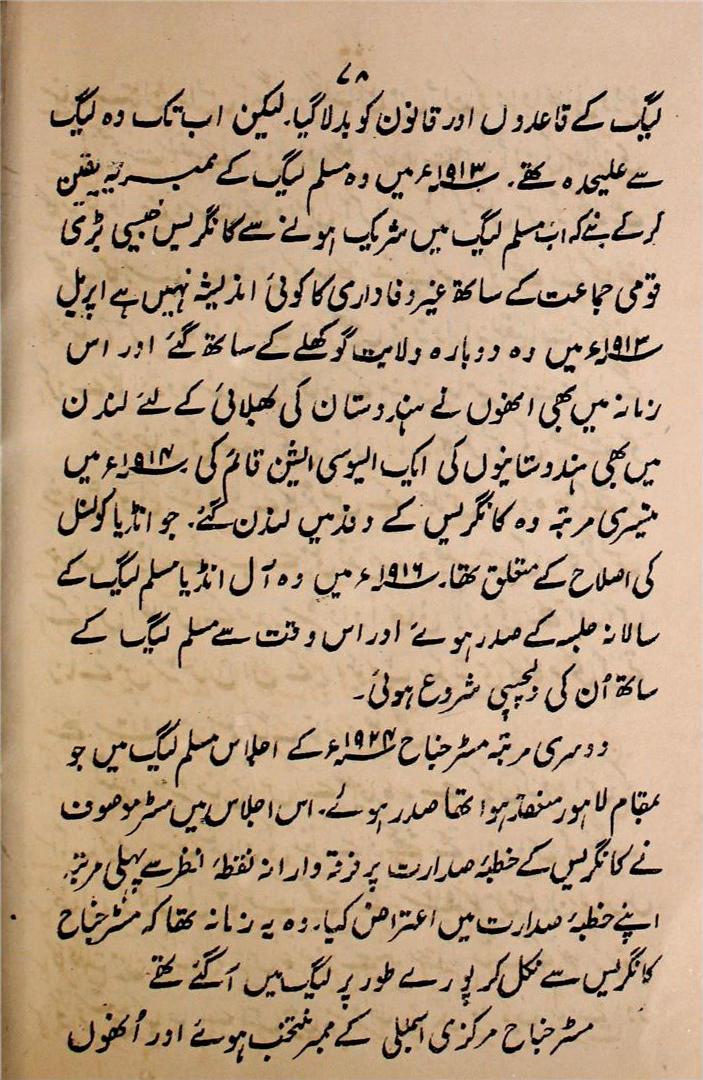 ۷۸
لیگ کے قاعدوں اور قانون کو بدلا گیا۔ لیکن اب تک وہ لیگ
سے علیحدہ تھے۔ ۱۹۱۳ء میں وہ مسلم لیگ کے ممبر یہ یقین
کر کے بنے کہ اب مسلم لیگ میں شریک ہونے سے کانگریس جیسی بڑی
قومی جماعت کے ساتھ غیر وفاداری کا کوئی اندیشہ نہیں ہے اپریل
۱۹۱۳ء میں وہ دوبارہ ولایت گوکھلے کے ساتھ گئے اور اس
زمانہ میں بھی انھوں نے ہندوستان کی بھلائی کے لئے لندن
میں بھی ہندوستانیوں کی ایک الیوسی ایشن قائم کی ۱۹۱۴ء میں
تیسری مرتبہ وہ کانگریس کے وفد میں لندن گئے۔ جو انڈیا کونسل
کی اصلاح کے متعلق تھا۔ ۱۹۱۶ء میں وہ آل انڈیا مسلم لیگ کے
سالانہ جلسہ کے صدر ہوئے اور اس وقت سے مسلم لیگ کے
ساتھ اُن کی دلچسپی شروع ہوئی۔
دوسری مرتبہ مسٹر جناح ۱۹۲۴ء کے اجلاس مسلم لیگ میں جو
بمقام لاہور منعقد ہوا تھا صدر ہوئے۔ اس اجلاس میں مسٹر موصوف
نے کانگریس کے خطبۂ صدارت پر فرقہ وارانہ نقطۂ نظر سے پہلی مرتبہ
اپنے خطبۂ صدارت میں اعتراض کیا۔ وہ یہ زمانہ تھا کہ مسٹر جناح
کانگریس سے نکل کر پورے طور پر لیگ میں آ گئے تھے
مسٹر جناح مرکزی اسمبلی کے ممبر منتخب ہوئے اور اُنھوں